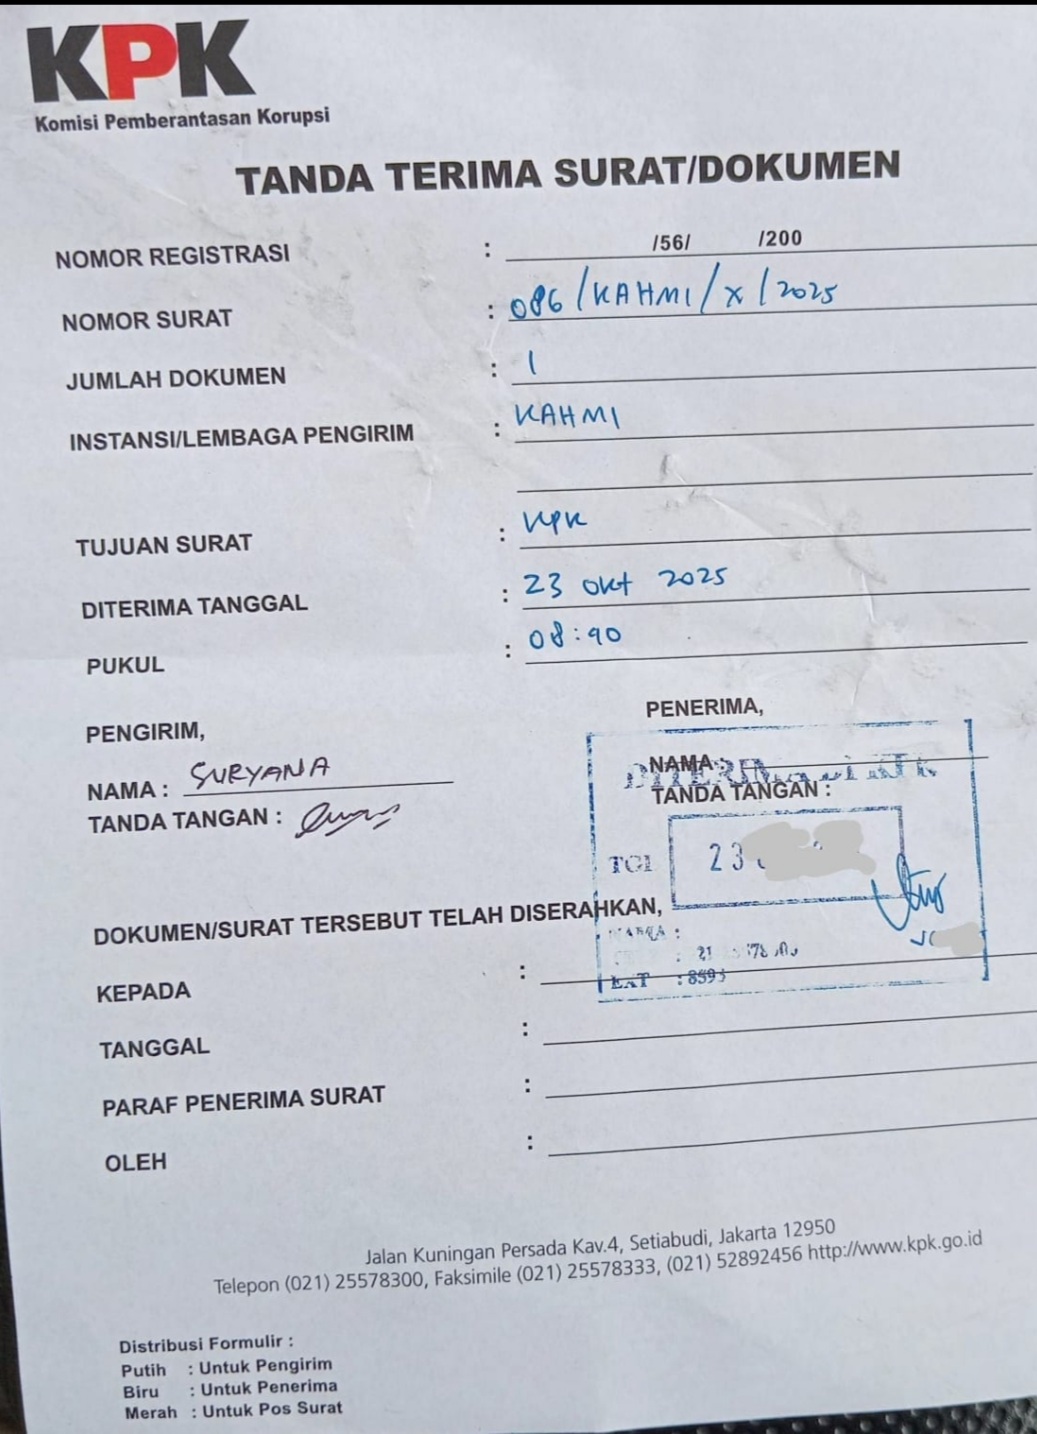 KPK
Komisi Pemberantasan Korupsi
TANDA TERIMA SURAT/DOKUMEN
NOMOR REGISTRASI : /56/ /200
NOMOR SURAT : 086/KAHMI/X/2025
JUMLAH DOKUMEN : 1
INSTANSI/LEMBAGA PENGIRIM : KAHMI
TUJUAN SURAT : KPK
DITERIMA TANGGAL : 23 Okt 2025
PUKUL : 08:40
PENGIRIM,
NAMA : SURYANA
TANDA TANGAN :
PENERIMA,
NAMA :
TANDA TANGAN :
DITERIMA DI KPK
TGL 23
NAMA :
: 21
EXT : 8593
DOKUMEN/SURAT TERSEBUT TELAH DISERAHKAN,
KEPADA :
TANGGAL :
PARAF PENERIMA SURAT :
OLEH :
Jalan Kuningan Persada Kav.4, Setiabudi, Jakarta 12950
Telepon (021) 25578300, Faksimile (021) 25578333, (021) 52892456 http://www.kpk.go.id
Distribusi Formulir :
Putih : Untuk Pengirim
Biru : Untuk Penerima
Merah : Untuk Pos Surat